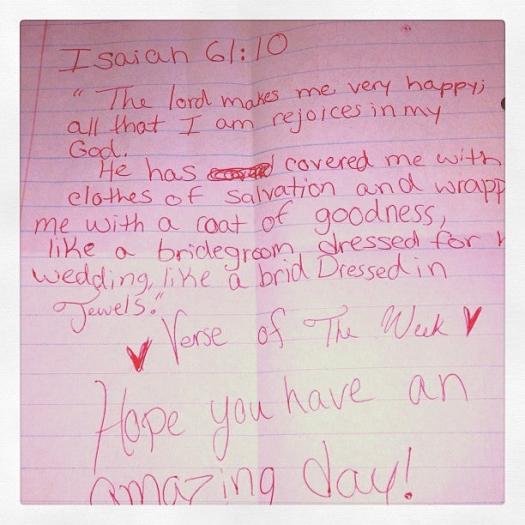 Isaiah 61:10
" The lord makes me very happy;
all that I am rejoices in my
God.
He has covered me with
clothes of salvation and wrapp
me with a coat of goodness,
like a bridegroom dressed for h
wedding, like a brid Dressed in
Jewels."
Verse of The Week
Hope you have an
amazing day!